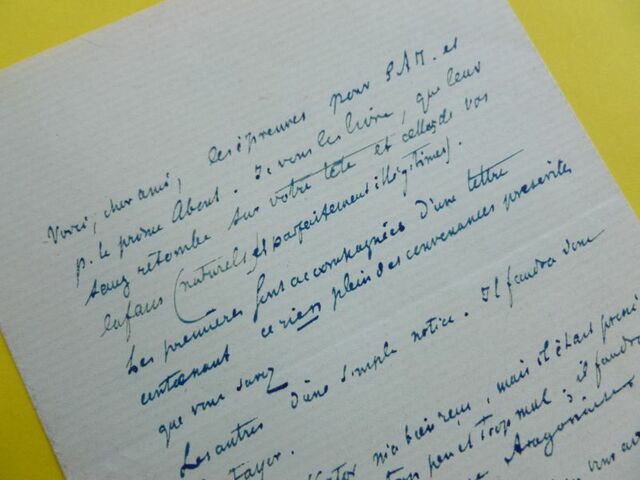 Voici, cher ami, les épreuves pour S A M. et
p. le prince Albert. Je vous les livre, que leur
sang retombe sur votre tête et celles de vos
enfants (naturels et parfaitement illégitimes).
Les premières sont accompagnées d'une lettre
contenant ce rien plein des convenances prescrites
que vous savez
Les autres d'une simple notice. Il faudra donc
m'a bien reçu, mais il était pressé
peu et trop mal ; il faudra
vous